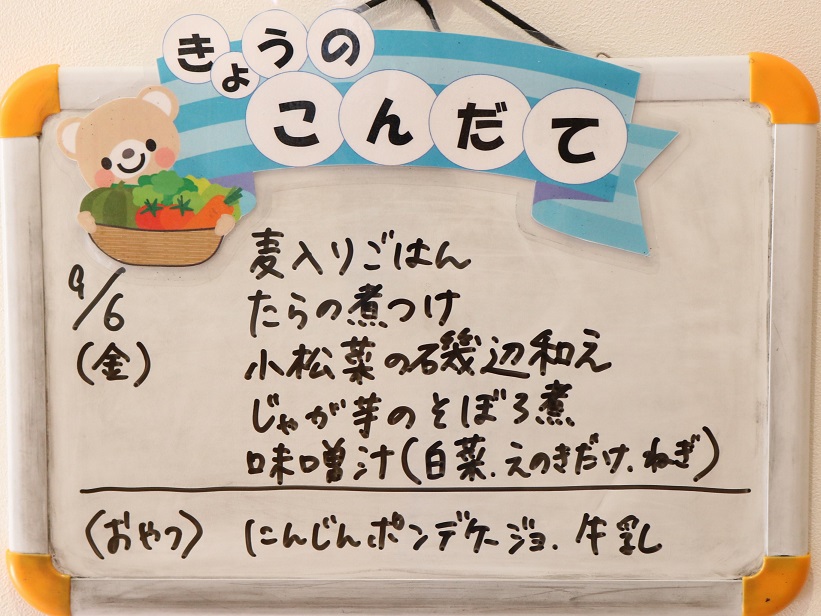 きょうの
こんだて
9/6
(金)
麦入りごはん
たらの煮つけ
小松菜の磯辺和え
じゃが芋のそぼろ煮
味噌汁(白菜.えのきだけ.ねぎ)
(おやつ) にんじんポンデケージョ.牛乳